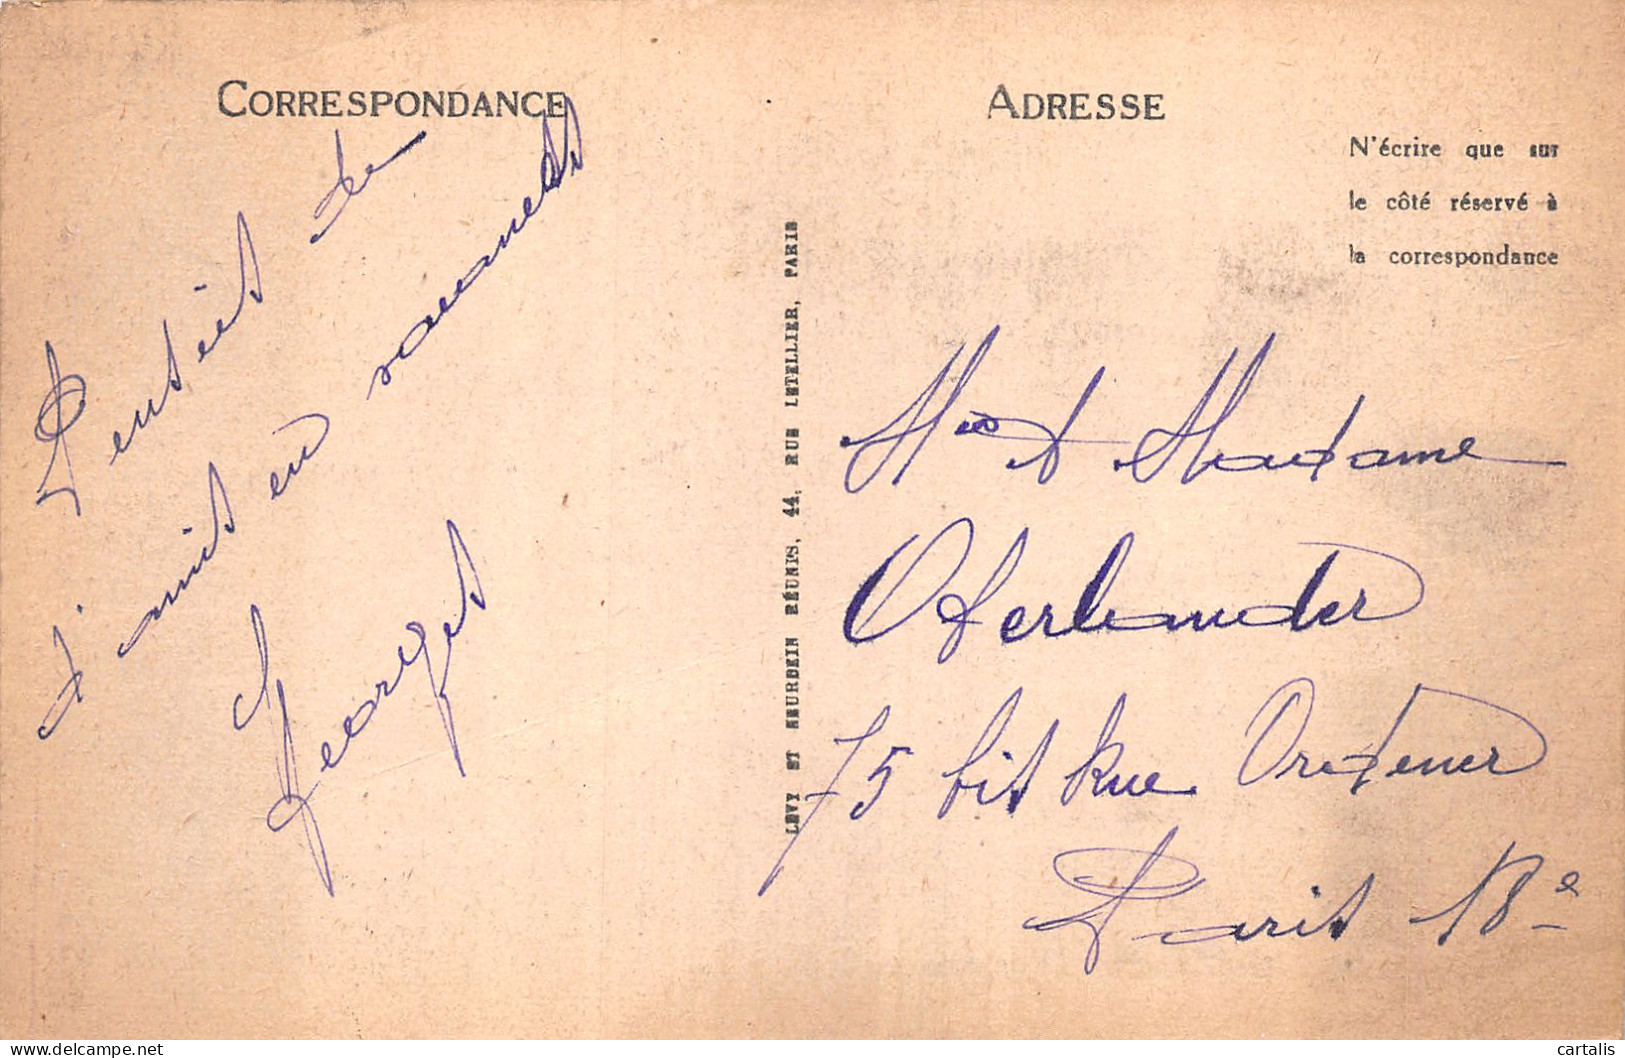 CORRESPONDANCE
Pensées de
d'amis en vacances
Georges
LÉVY ET NEURDEIN RÉUNIS, 44, RUE LETELLIER, PARIS
ADRESSE
N'écrire que sur
le côté réservé à
la correspondance
Mr et Madame
Oberlander
75 bis Rue Ordener
Paris 18e
cartalis
delcampe.net